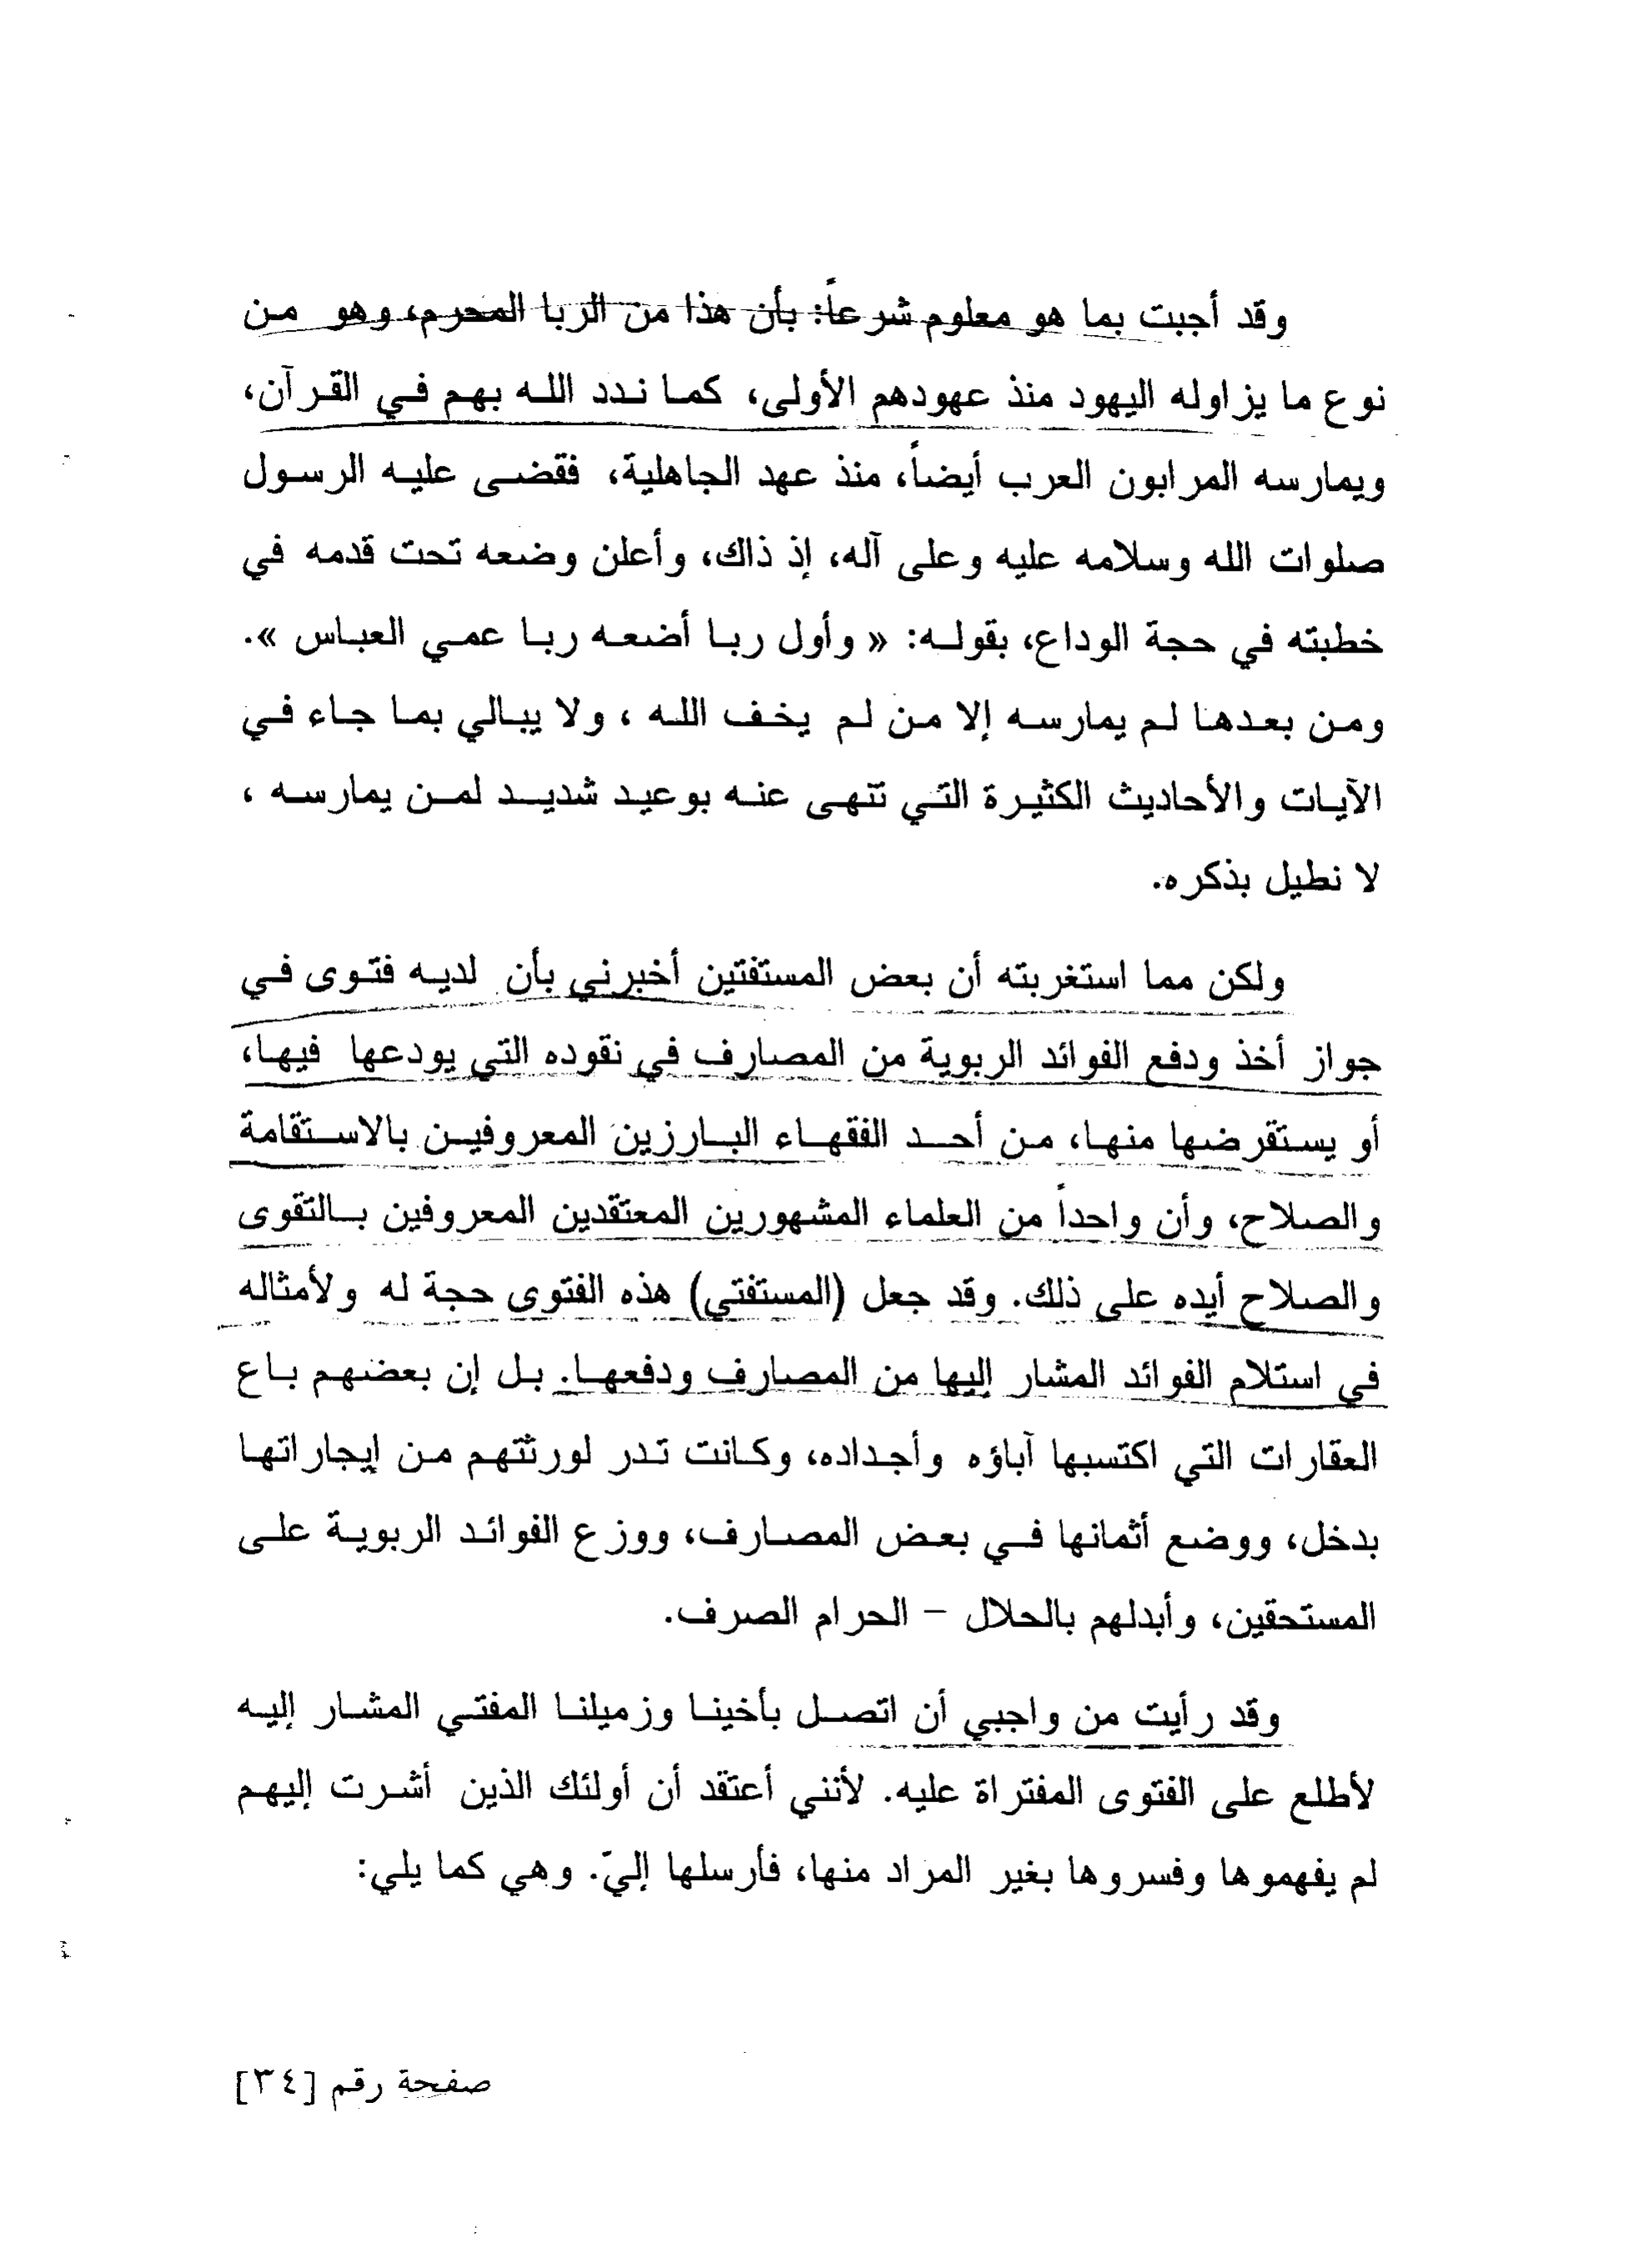 وقد أجبت بما هو معلوم شرعاً: بأن هذا من الربا المحرم، وهو من
نوع ما يزاوله اليهود منذ عهودهم الأولى، كما ندد الله بهم في القرآن،
ويمارسه المرابون العرب أيضاً، منذ عهد الجاهلية، فقضى عليه الرسول
صلوات الله وسلامه عليه وعلى آله، إذ ذاك، وأعلن وضعه تحت قدمه في
خطبته في حجة الوداع، بقوله: « وأول ربا أضعه ربا عمي العباس ».
ومن بعدها لم يمارسه إلا من لم يخف الله ، ولا يبالي بما جاء في
الآيات والأحاديث الكثيرة التي تنهى عنه بوعيد شديد لمن يمارسه ،
لا نطيل بذكره.
ولكن مما استغربته أن بعض المستفتين أخبرني بأن لديه فتوى في
جواز أخذ ودفع الفوائد الربوية من المصارف في نقوده التي يودعها فيها،
أو يستقرضها منها، من أحد الفقهاء البارزين المعروفين بالاستقامة
والصلاح، وأن واحداً من العلماء المشهورين المعتقدين المعروفين بالتقوى
والصلاح أيده على ذلك. وقد جعل (المستفتي) هذه الفتوى حجة له ولأمثاله
في استلام الفوائد المشار إليها من المصارف ودفعها. بل إن بعضهم باع
العقارات التي اكتسبها آباؤه وأجداده، وكانت تدر لورثتهم من إيجاراتها
بدخل، ووضع أثمانها في بعض المصارف، ووزع الفوائد الربوية على
المستحقين، وأبدلهم بالحلال – الحرام الصرف.
وقد رأيت من واجبي أن اتصل بأخينا وزميلنا المفتي المشار إليه
لأطلع على الفتوى المفتراة عليه. لأنني أعتقد أن أولئك الذين أشرت إليهم
لم يفهموها وفسروها بغير المراد منها، فأرسلها إليّ. وهي كما يلي:
صفحة رقم [٣٤]